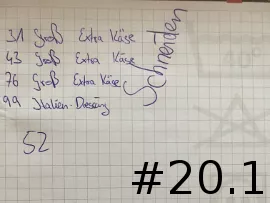 31 Groß Extra Käse
43 Groß Extra Käse
76 Groß Extra Käse
99 Italien-Dressing
Schneiden
52
#20.1